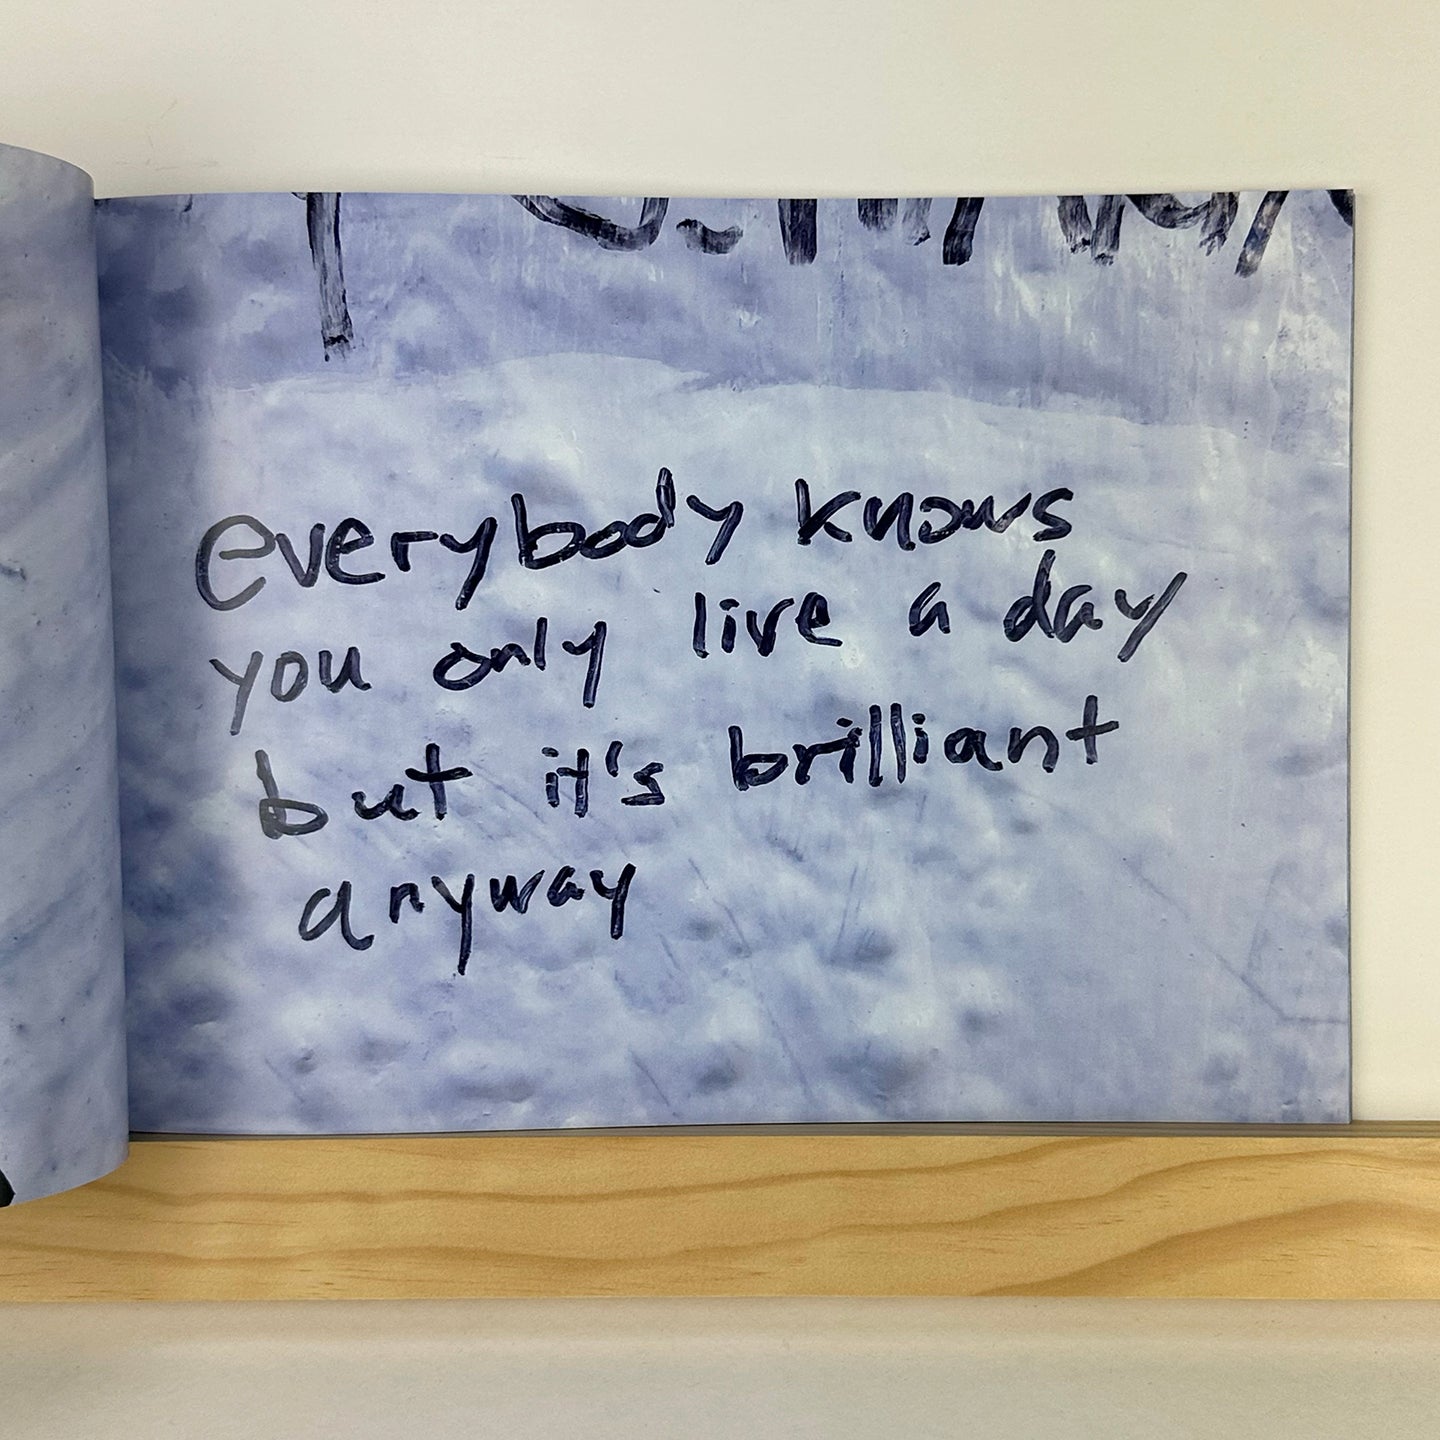 everybody knows
you only live a day
but it's brilliant
anyway